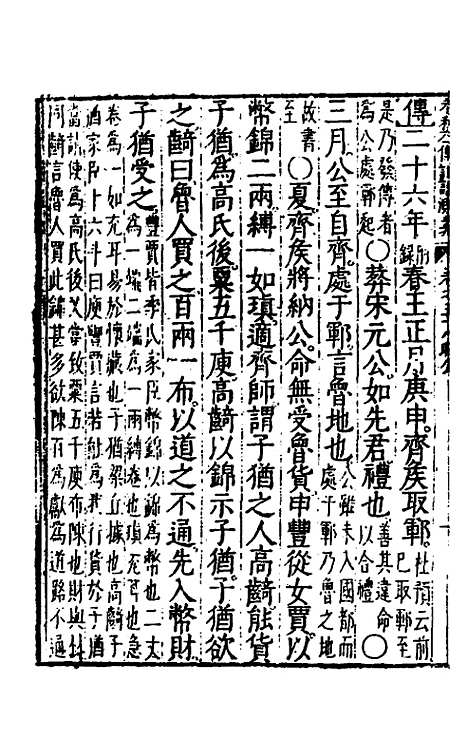 傳二十六年附錄春王正月庚申齊矦取鄆杜預云前巳取鄆至
是乃發傳者為公處鄆起〇葬宋元公如先君禮也善其違命以合禮〇
三月公至自齊處于鄆言魯地也公雖未入國都而處于鄆乃魯之地
故書至〇夏齊矦將納公命無受魯貨申豐從女賈以
幣錦二兩縛一如瑱適齊師謂子猶之人高齮能貨
子猶為高氏後粟五千庾高齮以錦示子猶子猶欲
之齮曰魯人買之百兩一布以道之不通先入幣財
子猶受之豐賈皆季氏家臣幣錦以錦為幣也二丈為一端二端為一兩縛卷也瑱充耳也急
卷為一如充耳易於懷藏也子猶梁丘據也高齮子猶家臣十六斗曰庾豐賈言若能為我行貨於子猶
當請使為高氏後又當致粟五千庾布陳也財與
同齮言魯人買此錦甚多欲陳有為獻為道路不通